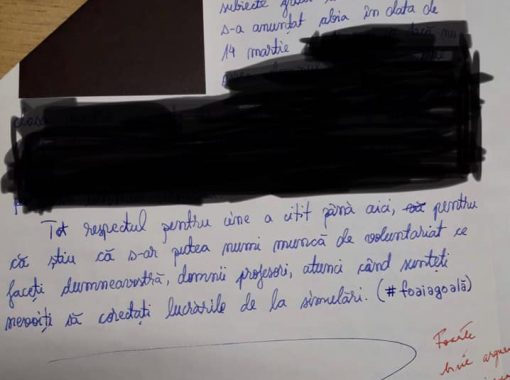 subiecte
s-a anunțat abia în data de
14 martie
Tot respectul pentru cine a citit până aici, pentru
că știu că s-ar putea numi muncă de voluntariat ce
faceți dumneavostră, domnii profesori, atunci când sunteți
nevoiți să corectați lucrările de la simulări. (#foaiagoală)
Foarte
bine